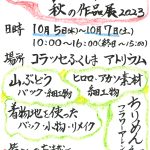 秋の作品展2023
日時 10月5日(木)～10月7日(土)
10:00～16:00(終日～15:00)
場所 コラッセふくしま アトリウム
山ぶどう
バック・細工物
ヒロロ・アカソ素材
細工物
着物地を使った
バック・小物・リメイク
ちりめん
フラワーアレン